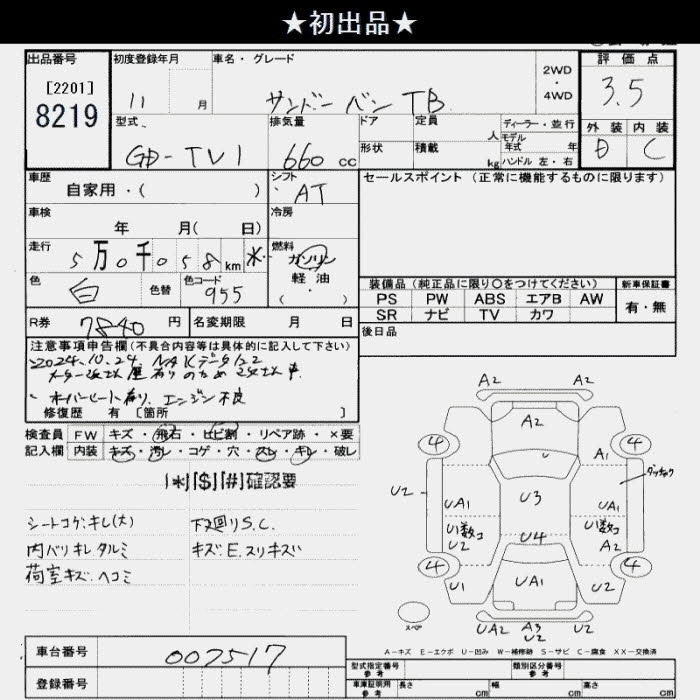 ★初出品★
出品番号
[2201]
8219
初度登録年月
11 月
車名・グレード
サンバーバン TB
2WD
・
4WD
評価点
3.5
外装 内装
D C
型式
GD-TV1
排気量
660 cc
ドア
形状
定員
人
積載
kg
ディーラー・並行
モデル
年式 年
ハンドル 左・右
車歴
自家用・( )
シフト
AT
セールスポイント (正常に機能するものに限ります)
車検
年 月( 日)
冷房
走行
5万0千058km *
燃料
ガソリン
軽油
( ・ )
色
白
色替
色コード
955
装備品 (純正品に限り○をつけてください)
新車保証書
PS PW ABS エアB AW
SR ナビ TV カワ
有・無
R券
7840 円
名変期限 月 日
後日品
注意事項申告欄(不具合内容等は具体的に記入して下さい)
2024.10.24
オーバーヒート有り、エンジン不良
修復歴 有 [箇所 ]
検査員 FW キズ・飛石・ヒビ割・リペア跡・×要
記入欄 内装 キズ・汚レ・コゲ・穴・スレ・キレ・破レ
[*][$][#]確認要
シートコゲ.キレ(大) 下廻りS.C.
内バリキレ タルミ キズ.E.スリキズ
荷室キズ.ヘコミ
A2
A2
4 4
A1
U2
U3
UA1 UA1
U1数コ U1数コ
U2 U4 A2
4 4
U1 UA1 U2
スペア
UA2 A3 U2
U2
A-キズ E-エクボ U-凹み W-補修跡 S-サビ C-腐食 XX-交換済
車台番号
007517
登録番号
型式指定番号
参考
類別区分番号
参考
車庫証明用
参考
長さ cm 幅 cm 高さ cm